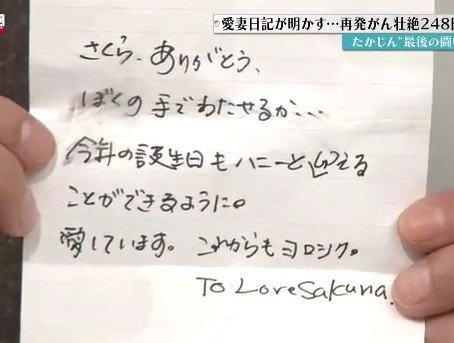 愛妻日記が明かす…再発がん壮絶248日
たかじん"最後の闘い
さくら、ありがとう、
ぼくの手でわたせるか、、、
今年の誕生日もハニーと迎える
ことができるように。
愛しています。これからもヨロシク。
To Love Sakura.